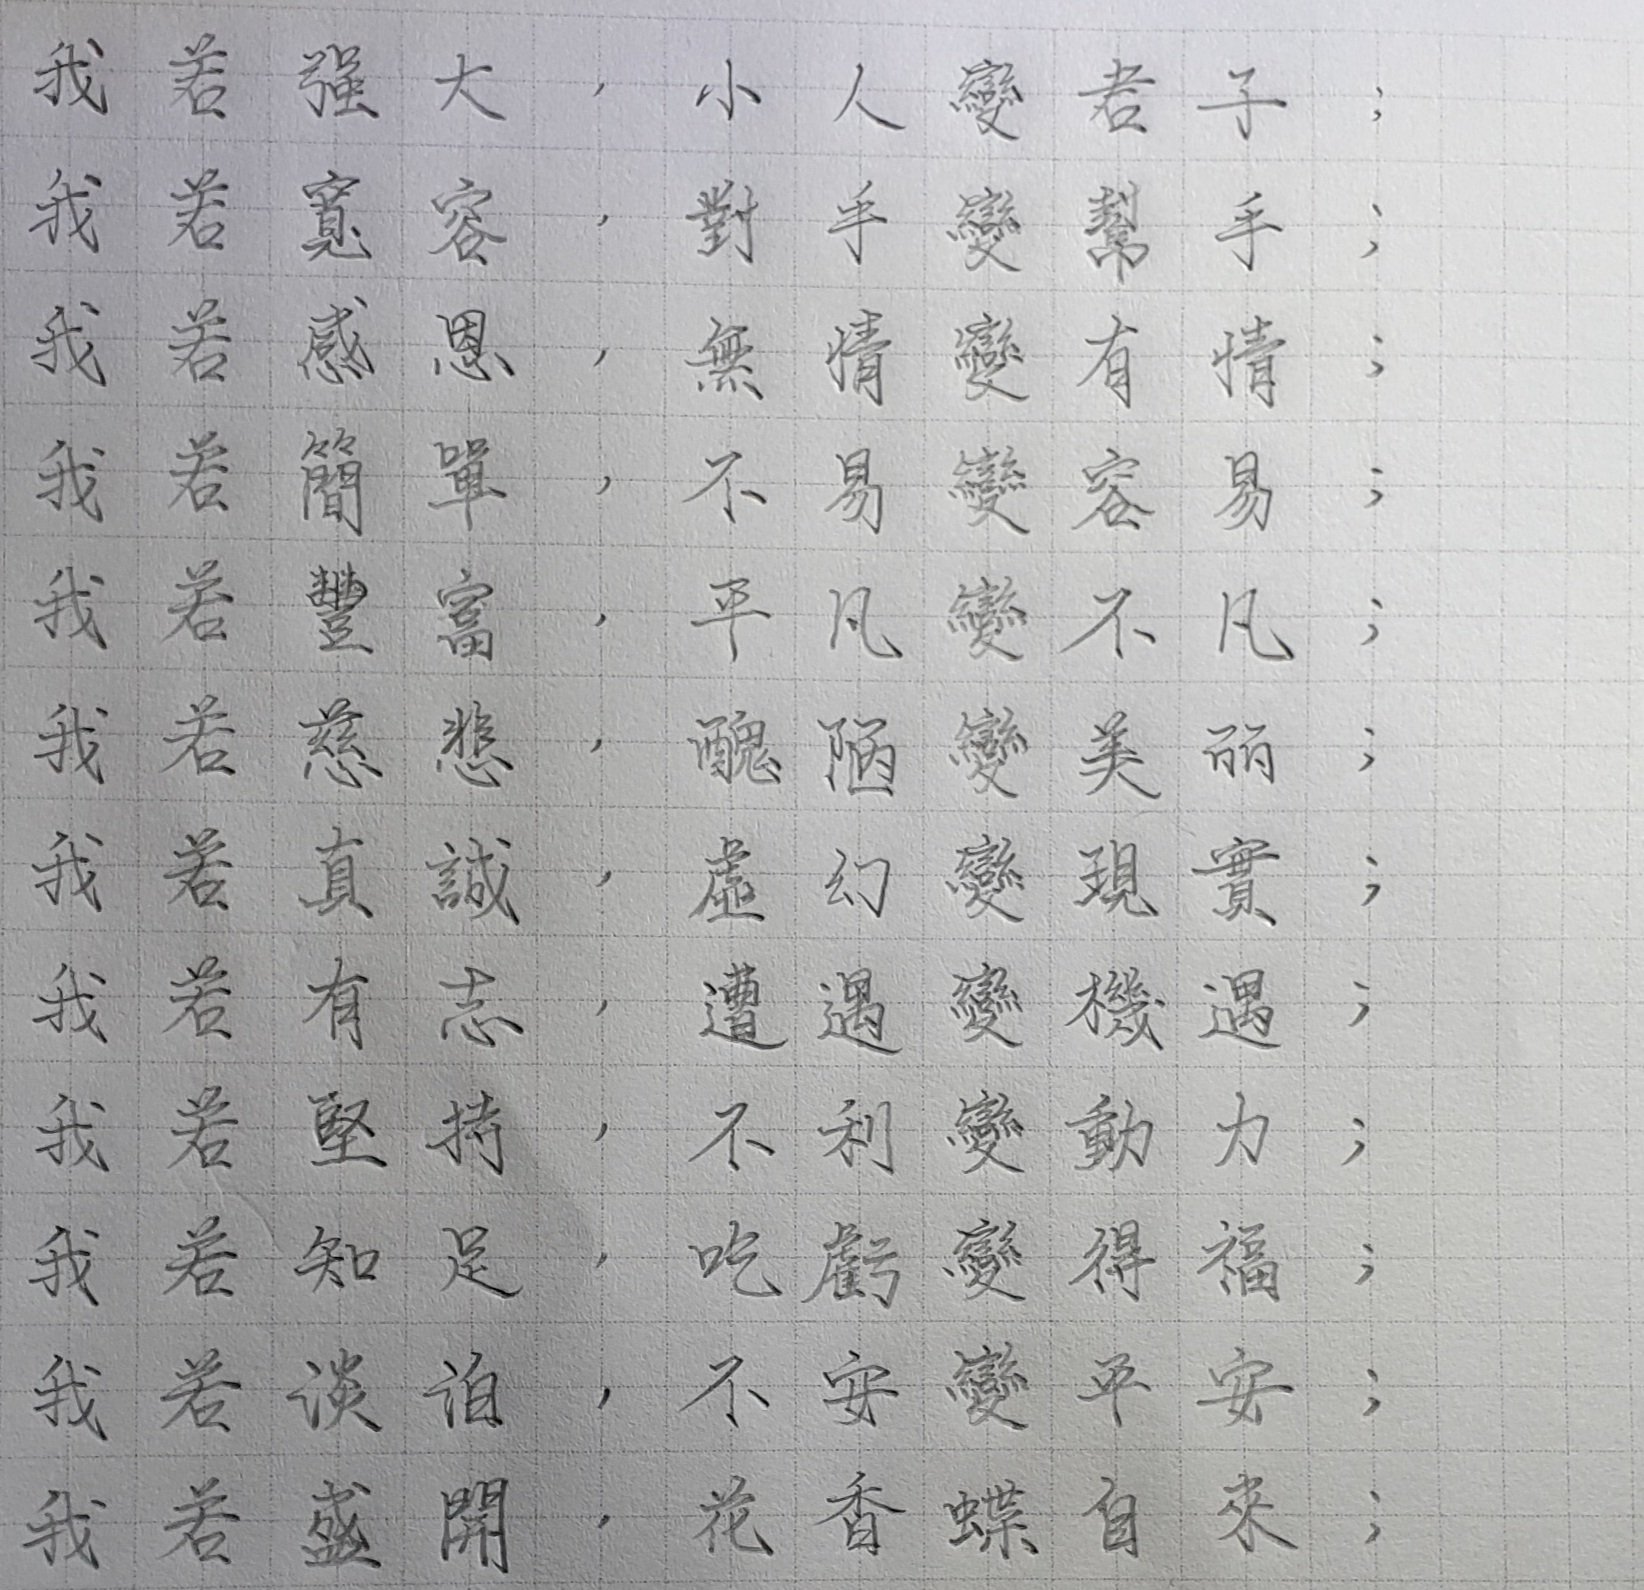 我若强大，小人變君子；
我若寬容，對手變幫手；
我若感恩，無情變有情；
我若簡單，不易變容易；
我若豐富，平凡變不凡；
我若慈悲，醜陋變美丽；
我若真誠，虛幻變現實；
我若有志，遭遇變機遇；
我若堅持，不利變動力；
我若知足，吃虧變得福；
我若谈泊，不安變平安；
我若盛開，花香蝶自來；